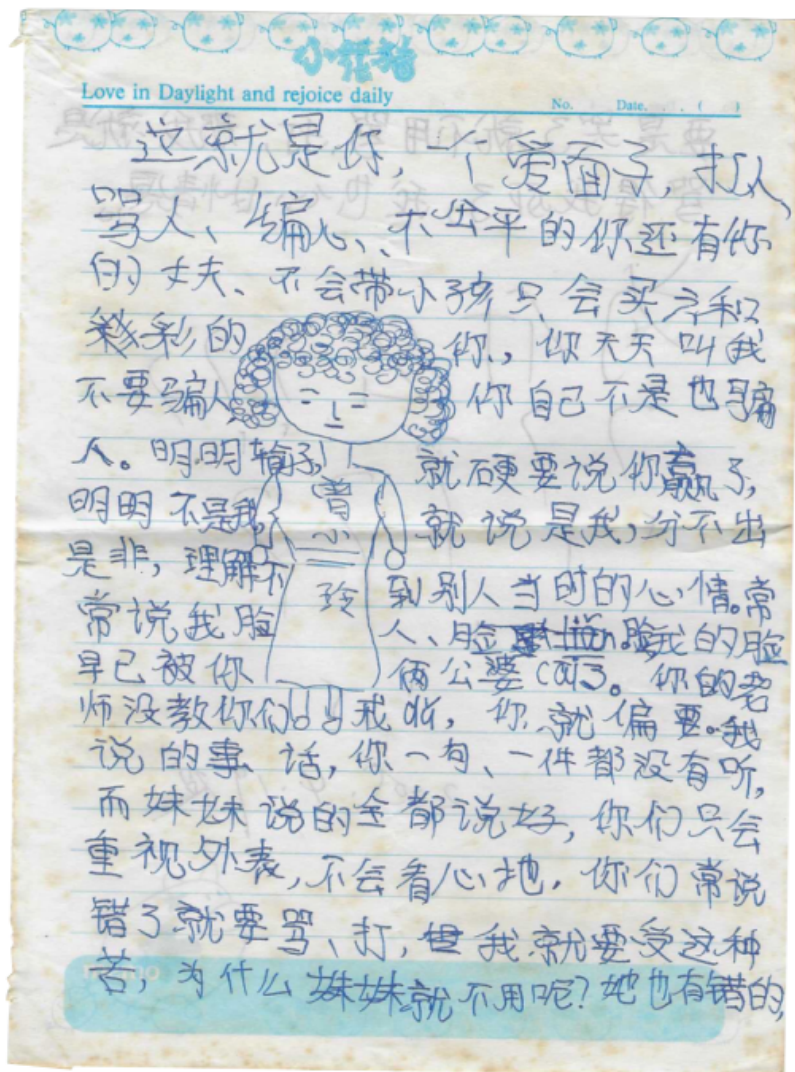 小猪猪
Love in Daylight and rejoice daily
No. Date. . . ( )
这就是你,一个爱面子,打人、
骂人、偏心、不公平的你还有你
的丈夫、不会带小孩只会买六和
彩的你,你天天叫我
不要骗人,你自己不是也骗
人。明明输了,就硬要说你赢了,
明明不是我,就说是我,分不出
是非,理解不到别人当时的心情。常
常说我脸人、脸 脸我的脸
早已被你俩公婆 了。你的老
师没教你们 我 ,你就偏要。我
说的事话,你一句、一件都没有听,
而妹妹说的全都说好,你们只会
重视外表,不会看心地,你们常说
错了就要骂、打,但我就要受这种
苦,为什么妹妹就不用呢?她也有错的,
曾小玲